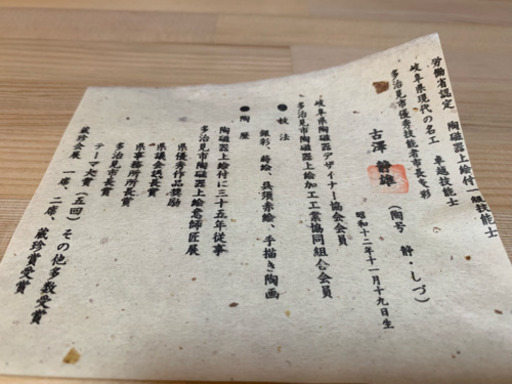 労働省認定 陶磁器上絵付一級技能士
岐阜県現代の名工 卓越技能士
多治見市優秀技能者章長を彰
古澤 静雄
(陶号 静・しづ)
昭和十二年十一月十九日生
岐阜県陶磁器デザイナー協会会員
多治見市陶磁器上絵加工工業協同組合会員
●技法
銀彩、蒔絵、呉須赤絵、手描き陶画
●陶歴
陶磁器上絵付に三十五年従事
多治見市陶磁器上絵老師匠展
県優秀作品奨励
県議会議長賞
県事務所所長賞
多治見市長賞
テーマ大賞(五回)その他多数受賞
蔵珍会展 一席、二席、蔵珍賞受賞